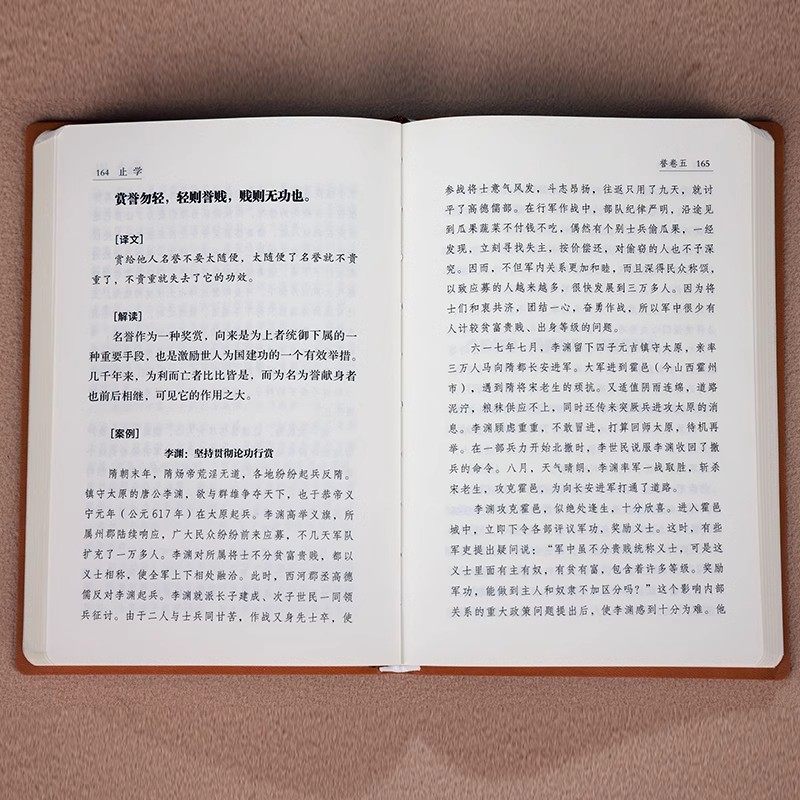 164 止学
赏誉勿轻，轻则誉贱，贱则无功也。
[译文]
赏给他人名誉不要太随便，太随便了名誉就不贵
重了，不贵重就失去了它的功效。
[解读]
名誉作为一种奖赏，向来是为上者统御下属的一
种重要手段，也是激励世人为国建功的一个有效举措。
几千年来，为利而亡者比比皆是，而为名为誉献身者
也前后相继，可见它的作用之大。
[案例]
李渊：坚持贯彻论功行赏
隋朝末年，隋炀帝荒淫无道，各地纷纷起兵反隋。
镇守太原的唐公李渊，欲与群雄争夺天下，也于恭帝义
宁元年（公元617年）在太原起兵。李渊高举义旗，所
属州郡陆续响应，广大民众纷纷前来应募，不几天军队
扩充了一万多人。李渊对所属将士不分贫富贵贱，都以
义士相称，使全军上下相处融洽。此时，西河郡丞高德
儒反对李渊起兵。李渊就派长子建成、次子世民一同领
兵征讨。由于二人与士兵同甘苦，作战又身先士卒，使
誉卷五 165
参战将士意气风发，斗志昂扬，往返只用了九天，就讨
平了高德儒部。在行军作战中，部队纪律严明，沿途见
到瓜果蔬菜不付钱不吃，偶然有个别士兵偷瓜果，一经
发现，立刻寻找失主，按价偿还，对偷窃的人也不予深
究。因而，不但军内关系更加和睦，而且深得民众称颂，
以致应募的人越来越多，很快发展到三万多人。因为将
士们和衷共济，团结一心，奋勇作战，所以军中很少有
人计较贫富贵贱、出身等级的问题。
六一七年七月，李渊留下四子元吉镇守太原，亲率
三万人马向隋都长安进军。大军进到霍邑（今山西霍州
市），遇到隋将宋老生的顽抗。又适值阴雨连绵，道路
泥泞，粮秣供应不上，同时还传来突厥兵进攻太原的消
息。李渊顾虑重重，不敢冒进，打算回师太原，待机再
举。在一部兵力开始北撤时，李世民说服李渊收回了撤
兵的命令。八月，天气晴朗，李渊率军一战取胜，斩杀
宋老生，攻克霍邑，为向长安进军打通了道路。
李渊攻克霍邑，似绝处逢生，十分欣喜。进入霍邑
城中，立即下令各部评议军功，奖励义士。这时，有些
军吏提出疑问说：“军中虽不分贵贱统称义士，可是这
义士里面有主有奴，有贫有富，包含着许多等级。奖励
军功，能做到主人和奴隶不加区分吗？”这个影响内部
关系的重大政策问题提出后，使李渊感到十分为难。他